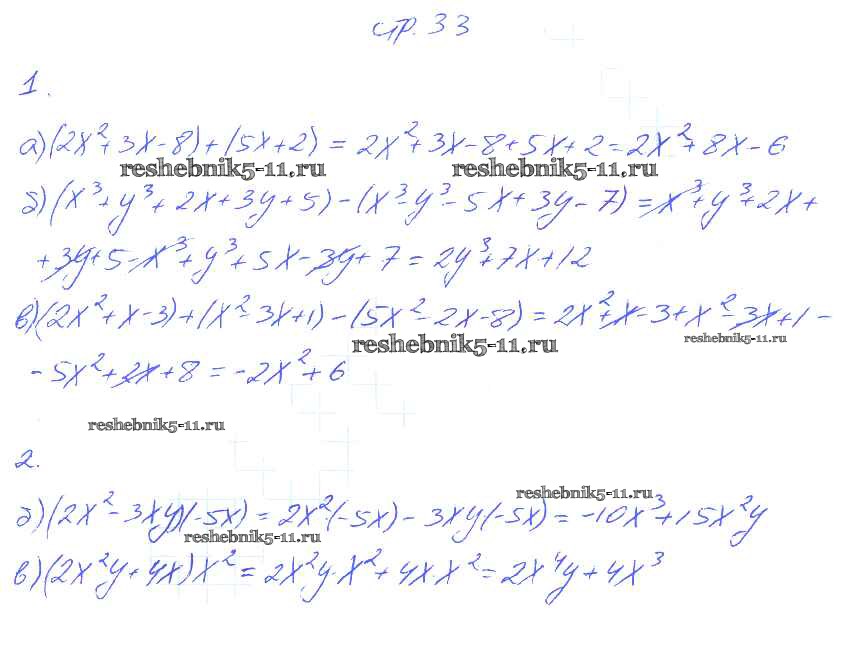 стр. 33
1.
а) (2x² + 3x - 8) + (5x + 2) = 2x² + 3x - 8 + 5x + 2 = 2x² + 8x - 6
reshebnik5-11.ru reshebnik5-11.ru
б) (x³ + y³ + 2x + 3y + 5) - (x³ - y³ - 5x + 3y - 7) = x³ + y³ + 2x +
+ 3y + 5 - x³ + y³ + 5x - 3y + 7 = 2y³ + 7x + 12
в) (2x² + x - 3) + (x² - 3x + 1) - (5x² - 2x - 8) = 2x² + x - 3 + x² - 3x + 1 -
reshebnik5-11.ru reshebnik5-11.ru
- 5x² + 2x + 8 = -2x² + 6
reshebnik5-11.ru
2.
reshebnik5-11.ru
б) (2x² - 3xy)(-5x) = 2x² · (-5x) - 3xy(-5x) = -10x³ + 15x²y
reshebnik5-11.ru
в) (2x²y + 4x)x² = 2x²y · x² + 4x · x² = 2x⁴y + 4x³